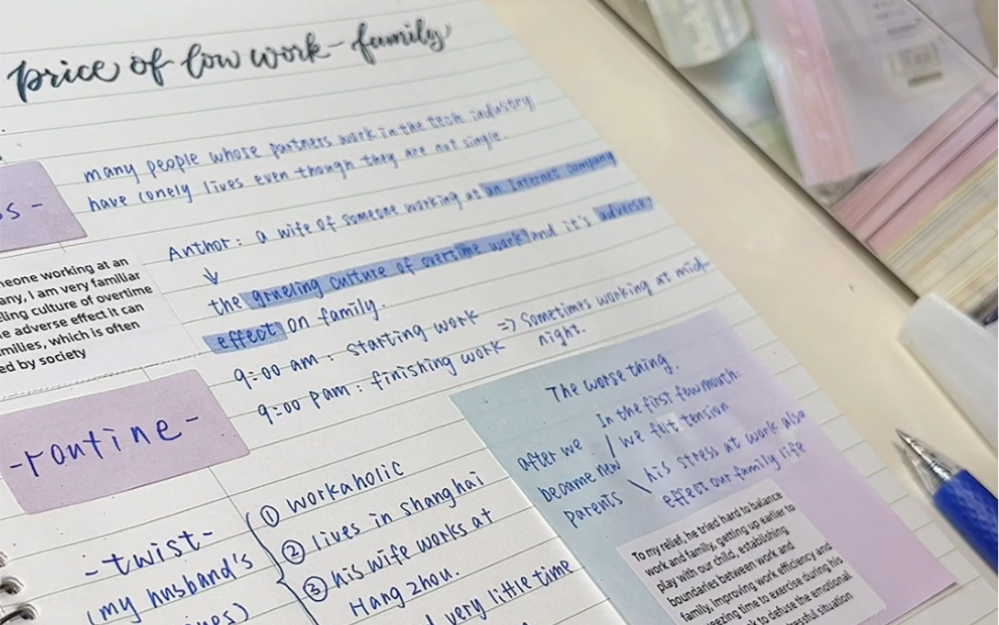 price of low work-family
many people whose partners work in the tech industry
have lonely lives even though they are not single.
Author: a wife of someone working at an Internet company
↓
the grueling culture of overtime work and it's adverse
effect on family.
9:00 am: starting work
9:00 pam: finishing work => Sometimes working at mid-
night.
s -
meone working at an
any, I am very familiar
ling culture of overtime
e adverse effect it can
milies, which is often
ed by society
-routine-
-twist-
(my husband's
① workaholic
② lives in Shanghai
③ his wife works at
Hang zhou.
very little time
The worse thing.
In the first few month.
after we / we felt tension
became new
parents \ his stress at work also
effect our family life
To my relief, he tried hard to balance
work and family, getting up earlier to
play with our child, establishing
boundaries between work and
family, improving work efficiency and
eezing time to exercise during his
k to defuse the emotional
tressful situation